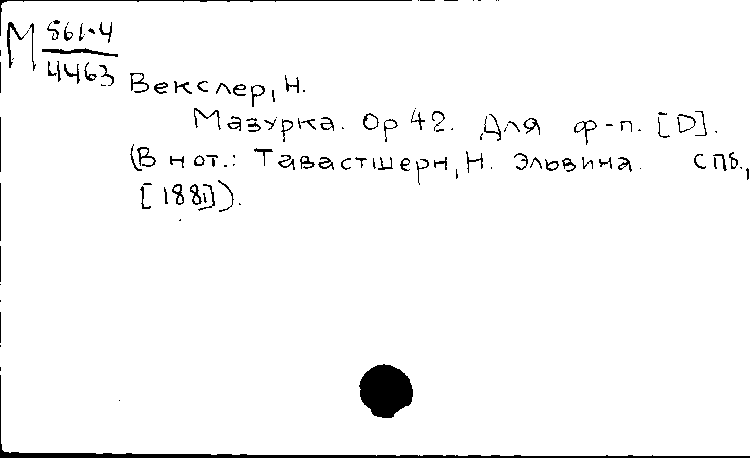 М 561-4
4463
Векслер, Н.
Мазурка. Ор 42. Для ф-п. [D].
(В нот.: Тавастшерн, Н. Эльвина. СПб.,
[188]]).